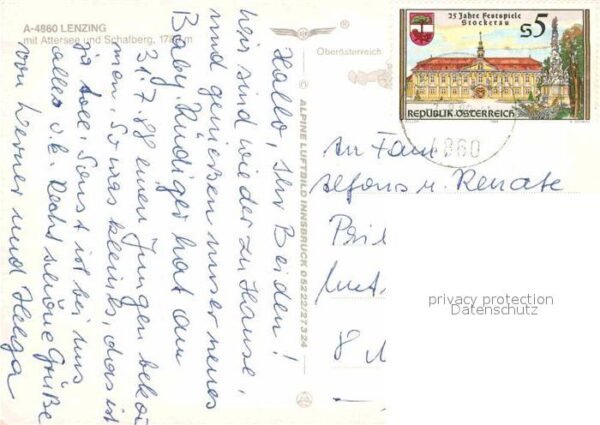 A-4860 LENZING
mit Attersee und Schafberg, 1783 m
Oberösterreich
Hallo, Ihr Beiden!
Wir sind wieder zu Hause,
und genießen unser neues
Baby. Rüdiger hat am
31.7.88 einen Jungen bekom
men. So was kleines, das ist
ja toll. Sonst ist bei uns
alles o.k. Recht schöne Grüße
von Werner und Helga
© ALPINE LUFTBILD INNSBRUCK 05222/27324
25 Jahre Festspiele
Stockerau
S5
REPUBLIK ÖSTERREICH
4860
An Fam.
Alfons u. Renate
8
privacy protection
Datenschutz